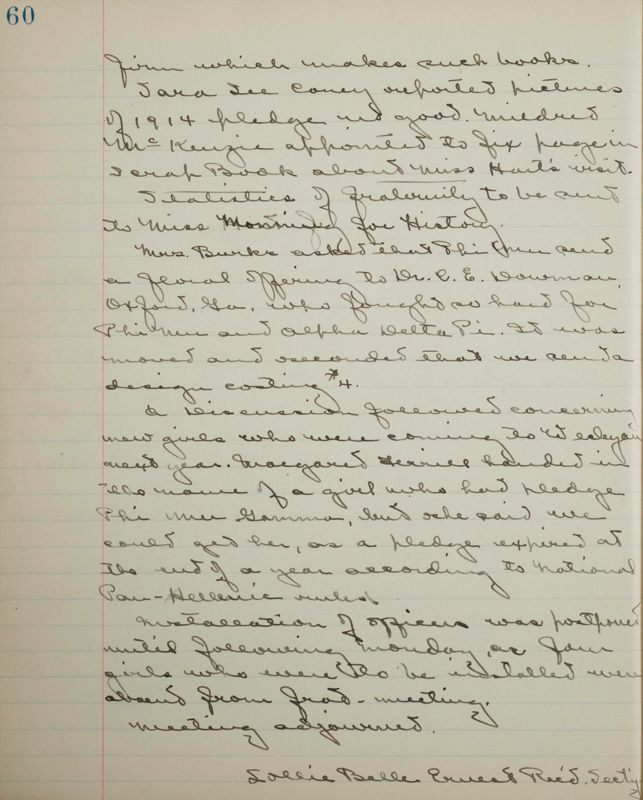 60
firm which makes such books.
Sara Lee Coney reported pictures
of 1914 pledge no good. Mildred
Mc Kenzie appointed to fix page in
scrap Book about Miss Hart's visit.
Statistics of fraternity to be sent
to Miss for History.
Mrs. Burks asked that Phi Mu send
a floral offering to Dr. C. E. Dowman,
Oxford, Ga. who fought so hard for
Phi Mu and Alpha Delta Pi. It was
moved and seconded that we send a
design costing $4.
A Discussion followed concerning
new girls who were coming to Wesleyan
next year. Margaret handed in
the name of a girl who had pledge
Phi Mu Gamma, but she said we
could get her, as a pledge expired at
the end of a year according to National
Pan-Hellenic rules.
Installation of officers was postponed
until following Monday, as four
girls who were to be installed were
absent from frat-meeting.
Meeting adjourned.
Lollie Belle Ernest Rec'd. Sec'ty